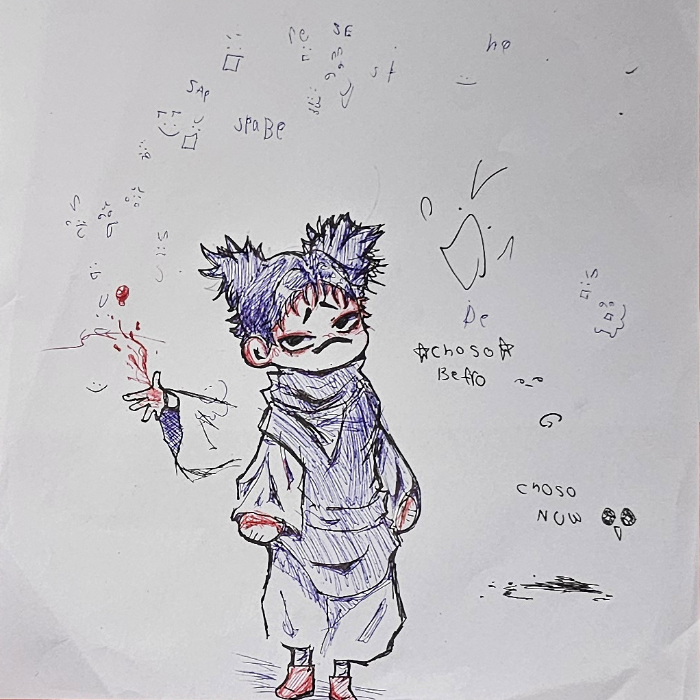 re SE
ho
st
SAP
SPABE
De
☆choso☆
Befro
choso
NOW